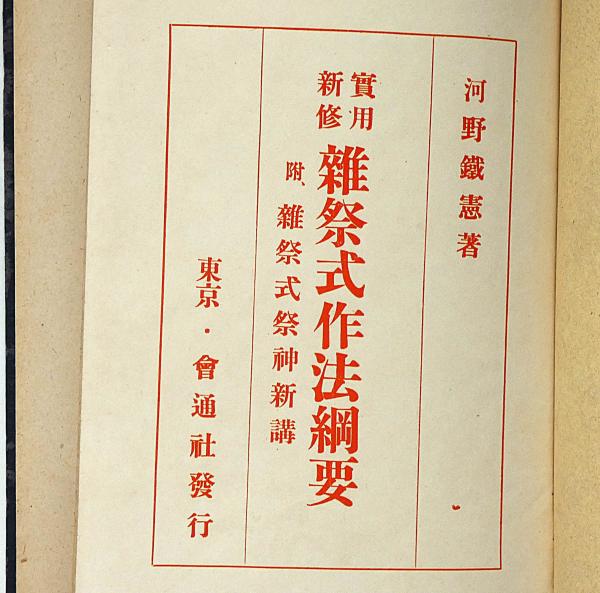 河野鐵憲著
實用
新修
雜祭式作法綱要
附、雜祭式祭神新講
東京・會通社發行